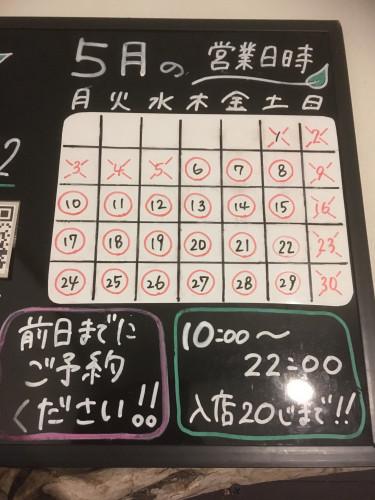 5月の 営業日時
月 火 水 木 金 土 日
1 2
3 4 5 6 7 8 9
10 11 12 13 14 15 16
17 18 19 20 21 22 23
24 25 26 27 28 29 30
前日までに
ご予約
ください!!
10:00〜
22:00
入店20じまで!!